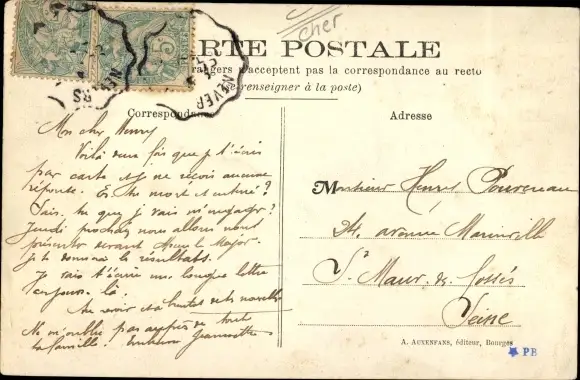 cher
CARTE POSTALE
rangers n'acceptent pas la correspondance au recto
(Se renseigner à la poste)
Correspondance
Adresse
Mon cher Henry
Voilà deux fois que je t'écris
par carte et je ne reçois aucune
réponse. Es-tu mort et enterré?
Sais-tu que je vais m'engager?
Jeudi prochain nous allons nous
présenter devant le Major.
je te donnerai le résultats.
Je vais t'écrire une longue lettre
ce jour-là.
Au revoir et à bientôt de tes nouvelles
Ne m'oublie pas auprès de toute
ta famille. Jeannette
Monsieur Henry
24, avenue Marinville
St Maur-des-Fossés
Seine
A. AUXENFANS, éditeur, Bourges
PB
5
NEVERS
NEVER